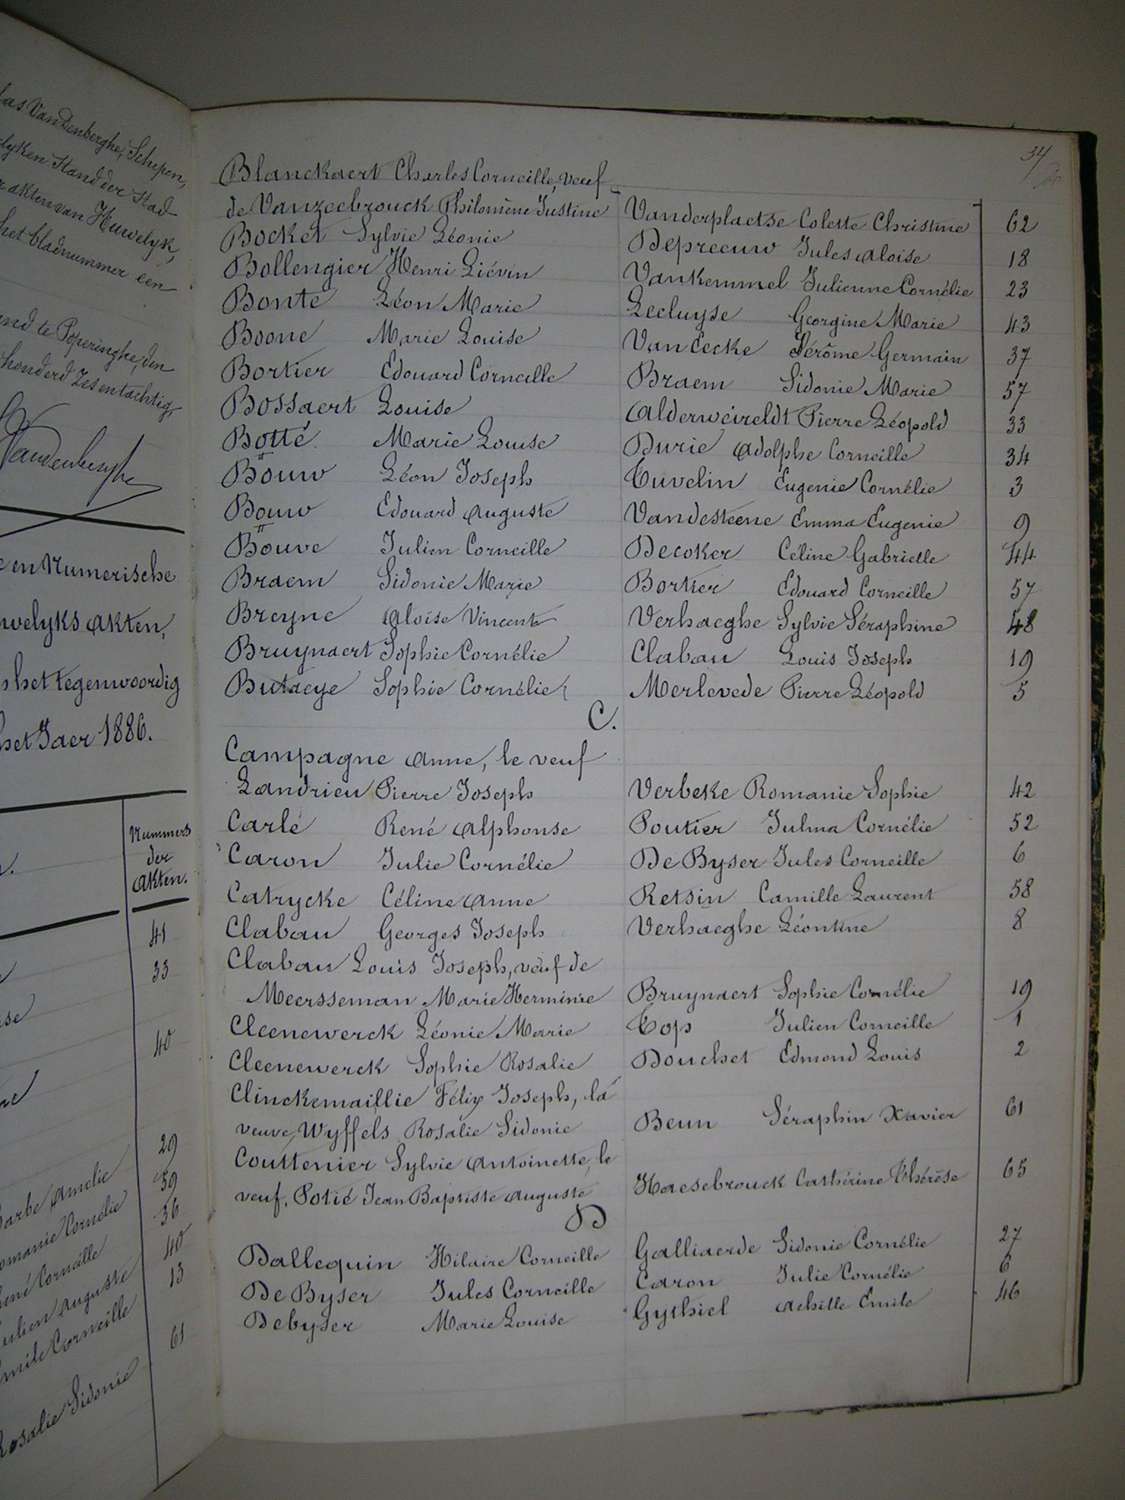 las Vandenberghe, Schepen,
lyken Stand der Stad
r akten van Huwelyk,
het bladnummer een
end te Poperinghe, den
honderd zesentachtig
Vandenberghe
e en Numerische
welyks akten,
s het tegenwoordig
het Jaer 1886.
Nummers
der
akten.
41
33
40
29
Barbe Amelie 59
omanie Cornélie 36
ené Corneille 40
ulien Auguste 13
mile Corneille
61
Rosalie Sidonie
34
Blanckaert Charles Corneille, veuf
de Vanzeebrouck Philomène Justine Vanderplaetse Colette Christine 62
Bocket Sylvie Léonie Depreeuw Jules Aloise 18
Bollengier Henri Liévin Vankemmel Julienne Cornélie 23
Bonte Léon Marie Lecluyse Georgine Marie 43
Boone Marie Louise Van Eecke Jérôme Germain 37
Bortier Edouard Corneille Braem Sidonie Marie 57
Bossaert Louise Alderweireldt Pierre Léopold 33
Botté Marie Louise Durie Adolphe Corneille 34
Boüw Léon Joseph Cuvelin Eugenie Cornélie 3
Bouw Edouard Auguste Vandesteene Emma Eugenie 9
Boüve Julien Corneille Decoker Céline Gabrielle 44
Braem Sidonie Marie Bortier Edouard Corneille 57
Breyne Aloïse Vincent Verhaeghe Sylvie Séraphine 48
Bruynaert Sophie Cornélie Claban Louis Joseph 19
Butaeye Sophie Cornélie Merlevede Pierre Léopold 5
C.
Campagne Anne, le veuf
Landrieu Pierre Joseph Verbeke Romanie Sophie 42
Carlé René Alphonse Poutier Julma Cornélie 52
Caron Julie Cornélie De Byser Jules Corneille 6
Catrycke Céline Anne Retsin Camille Laurent 58
Clabau Georges Joseph Verhaeghe Léontine 8
Clabau Louis Joseph, veuf de
Meersseman Marie Herminie Bruynaert Sophie Cornélie 19
Cleenewerck Léonie Marie Top Julien Corneille 1
Cleenewerck Sophie Rosalie Douchet Edmond Louis 2
Clinckemaillie Félix Joseph, la
veuve, Wyffels Rosalie Sidonie Beun Séraphin Xavier 61
Couttenier Sylvie Antoinette, le
veuf, Potié Jean Baptiste Auguste Haesebrouck Cathérine Thérèse 65
D
Dallequin Hilaire Corneille Galliaerde Sidonie Cornélie 27
De Byser Jules Corneille Caron Julie Cornélie 6
Debyser Marie Louise Gythiel Achille Emile 46